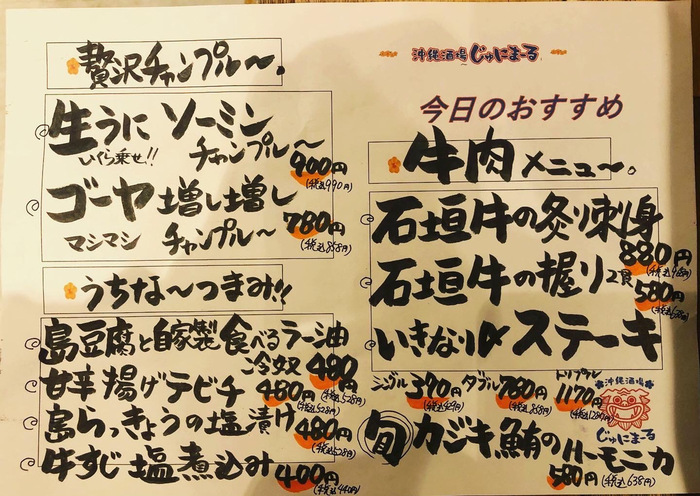 贅沢チャンプル〜。
生うに ソーミン
いくら乗せ!! チャンプル〜
900円
(税込990円)
ゴーヤ増し増し
マシマシ チャンプル〜 780円
(税込858円)
うちな〜つまみ!!
島豆腐と自家製食べるラー油
冷奴 480円
(税込528円)
甘辛揚げテビチ 480円
(税込528円)
島らっきょうの塩漬け 480円
(税込528円)
牛すじ塩煮込み 400円
(税込440円)
沖縄酒場 じゅにまーる
今日のおすすめ
牛肉メニュー。
石垣牛の炙り刺身
880円
(税込968円)
石垣牛の握り 2貫 580円
(税込638円)
いきなり〆ステーキ
シングル 390円 ダブル 780円 トリプル 1170円
(税込429円) (税込858円) (税込1287円)
沖縄酒場
じゅにまーる
旬 カジキ鮪のハーモニカ
580円 (税込638円)